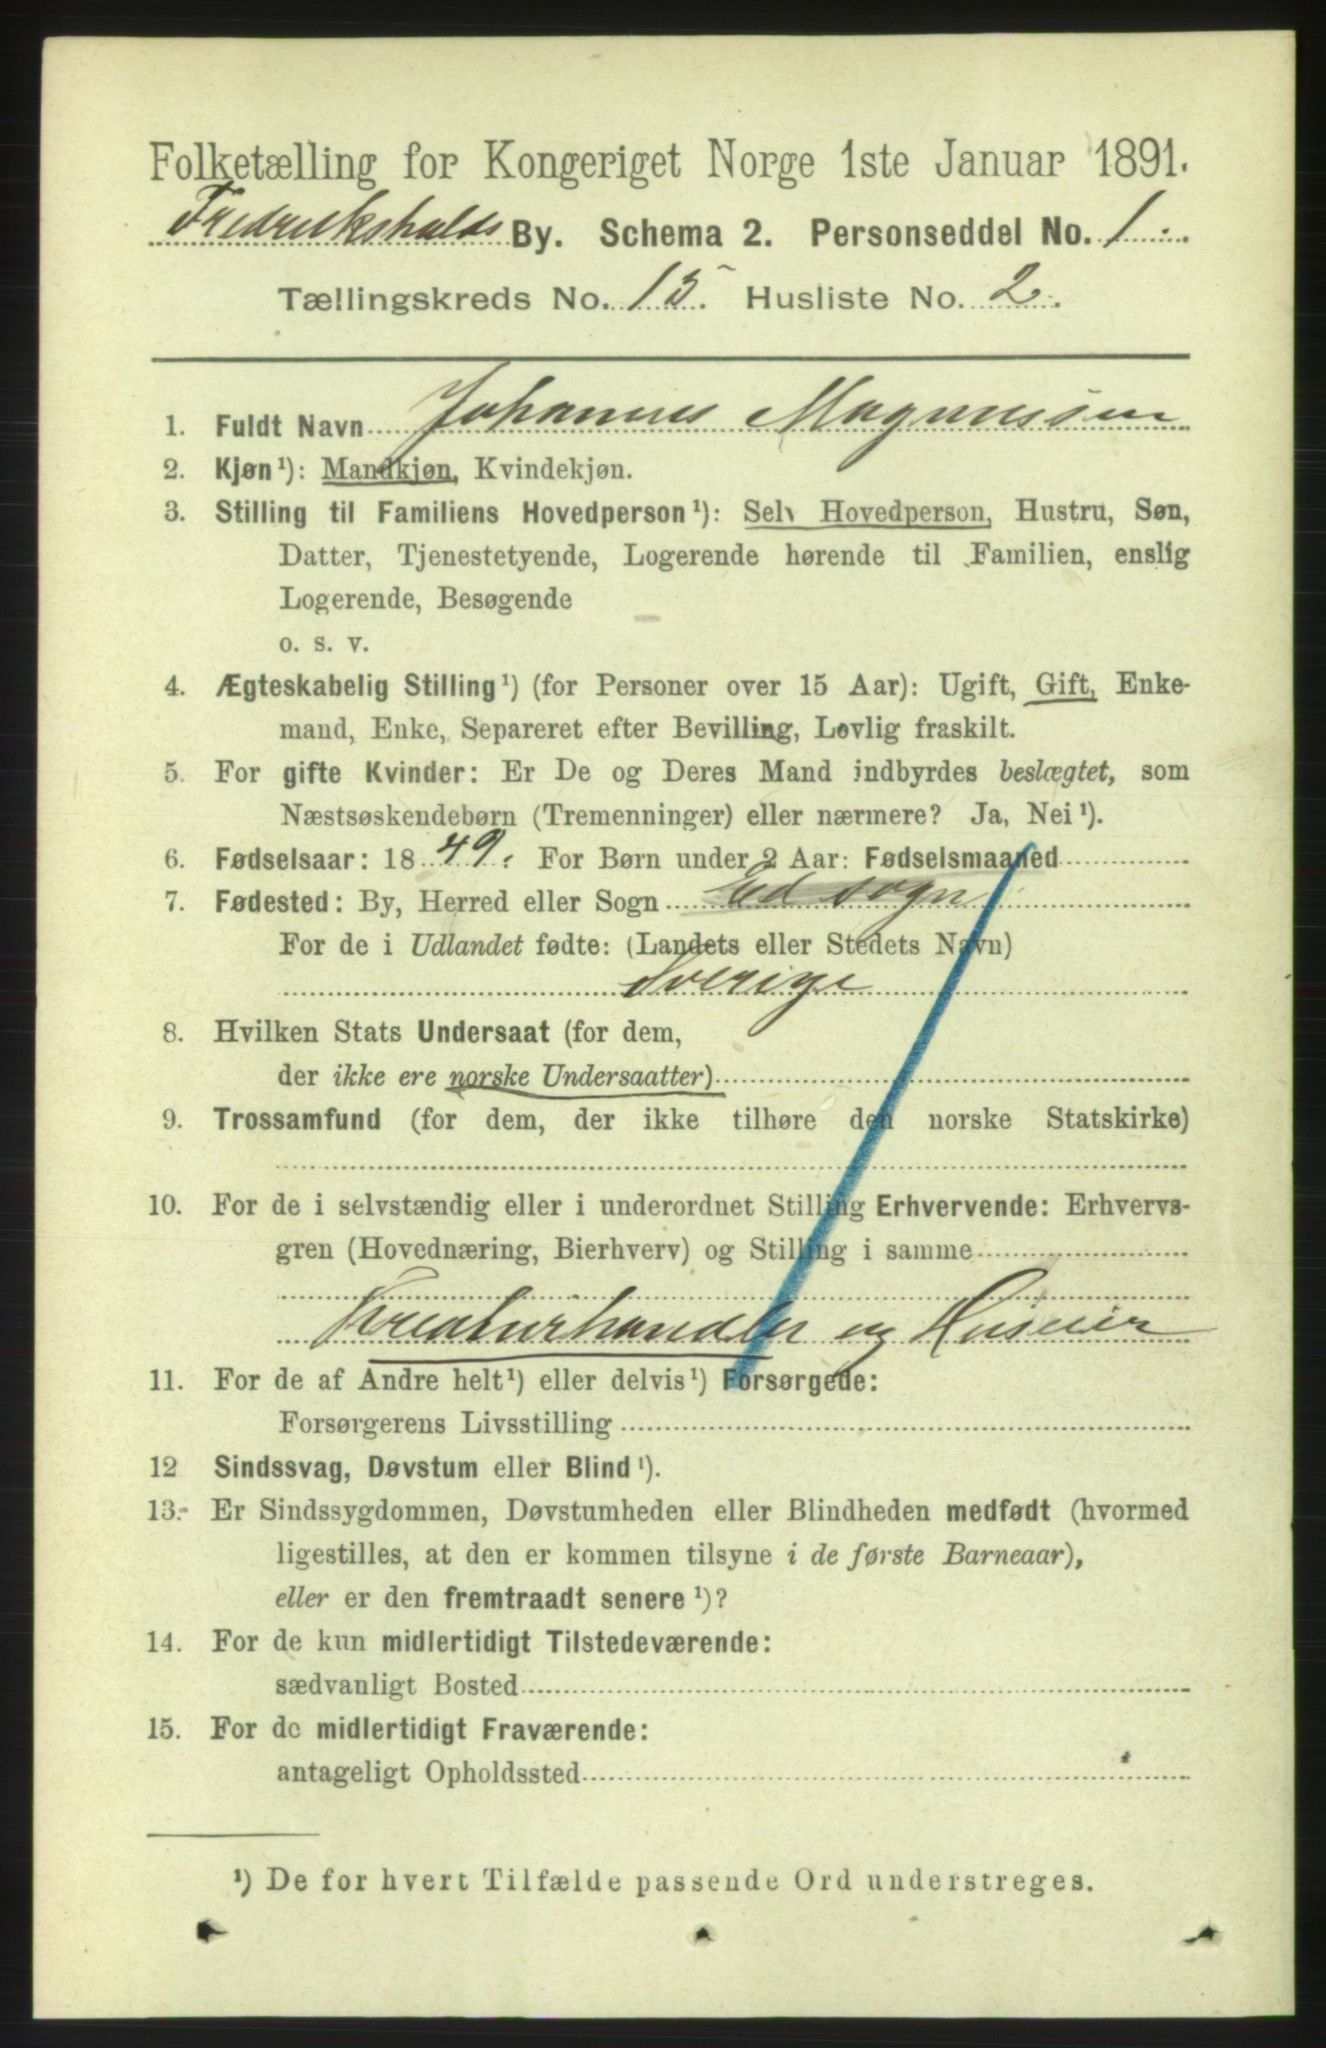 Folketælling for Kongeriget Norge 1ste Januar 1891.
Fredrikshalds By. Schema 2. Personseddel No. 1.
Tællingskreds No. 15. Husliste No. 2.
1. Fuldt Navn Johannes Magnussen
2. Kjøn¹): Mandkjøn, Kvindekjøn.
3. Stilling til Familiens Hovedperson¹): Selv Hovedperson, Hustru, Søn,
Datter, Tjenestetyende, Logerende hørende til Familien, enslig
Logerende, Besøgende
o. s. v.
4. Ægteskabelig Stilling¹) (for Personer over 15 Aar): Ugift, Gift, Enke-
mand, Enke, Separeret efter Bevilling, Lovlig fraskilt.
5. For gifte Kvinder: Er De og Deres Mand indbyrdes beslægtet, som
Næstsøskendebørn (Tremenninger) eller nærmere? Ja, Nei¹).
6. Fødselsaar: 1849. For Børn under 2 Aar: Fødselsmaaned
7. Fødested: By, Herred eller Sogn Ed sogn
For de i Udlandet fødte: (Landets eller Stedets Navn)
Sverige
8. Hvilken Stats Undersaat (for dem,
der ikke ere norske Undersaatter)
9. Trossamfund (for dem, der ikke tilhøre den norske Statskirke)
10. For de i selvstændig eller i underordnet Stilling Erhvervende: Erhvervs-
gren (Hovednæring, Bierhverv) og Stilling i samme
Kreaturhandler og Huseier
11. For de af Andre helt¹) eller delvis¹) Forsørgede:
Forsørgerens Livsstilling
12 Sindssvag, Døvstum eller Blind¹).
13. Er Sindssygdommen, Døvstumheden eller Blindheden medfødt (hvormed
ligestilles, at den er kommen tilsyne i de første Barneaar),
eller er den fremtraadt senere¹)?
14. For de kun midlertidigt Tilstedeværende:
sædvanligt Bosted
15. For de midlertidigt Fraværende:
antageligt Opholdssted
¹) De for hvert Tilfælde passende Ord understreges.